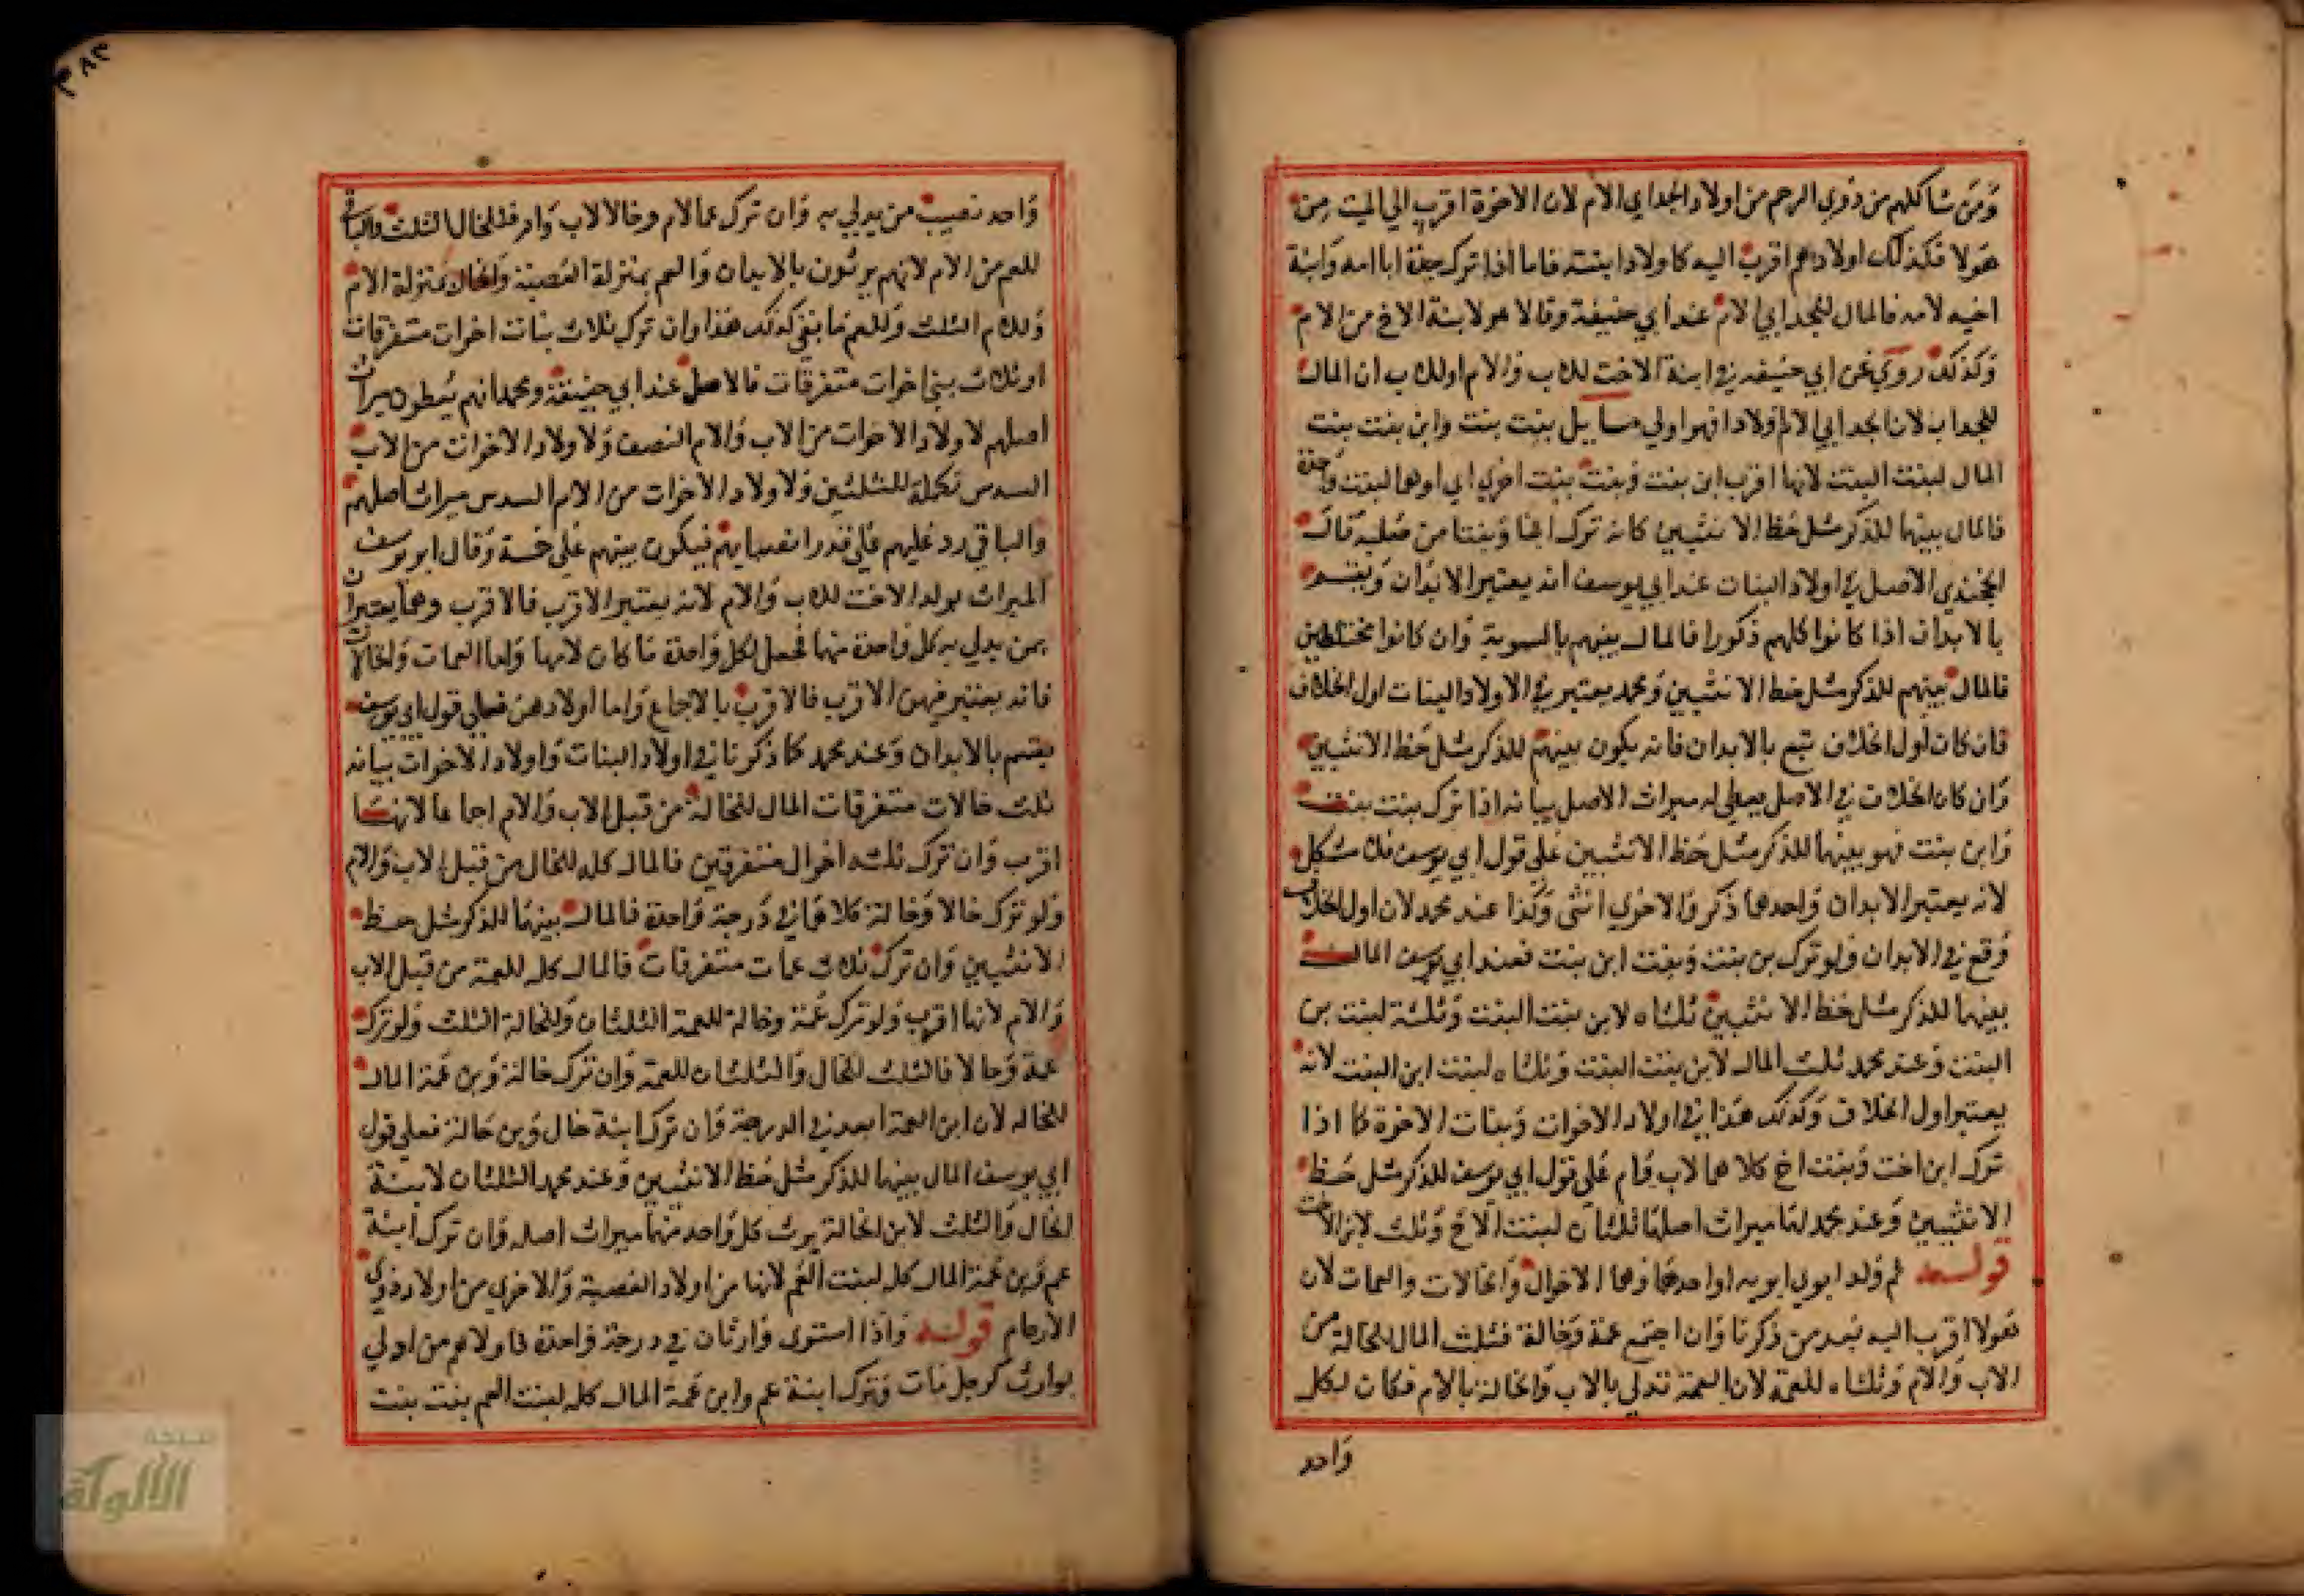 وَمَن شاكلهم من ذوي الرحم من اولاد الجد ابي الام لان الاخوة اقرب الي الميت من
هولا فكذلك اولادهم اقرب اليه كاولاد ابنته فاما اذا ترك جده ابا امه وابنة
اخيه لامه فالمال للجد ابي الام عند أبي حنيفة وقالا هو لابنة الاخ من الام
وكذلك روي عن ابي حنيفه في ابنة الاخت للاب والام او للاب ان المال
للجد اب لان الجد ابي الام اولادا فهو اولي مسايل بنت بنت وابن بنت بنت
المال لبنت البنت لانها اقرب ابن بنت وبنت بنت اخري اي او هما لبنت واحدة
فالمال بينهما للذكر مثل حظ الانثيين كانه ترك ابنا وبنتا من صلبه قال
الخجندي الاصل في اولاد البنات عند ابي يوسف انه يعتبر الابدان ويقسم
بالابدان اذا كانوا كلهم ذكورا فالمال بينهم بالسوية وان كانوا مختلطين
فالمال بينهم للذكر مثل حظ الانثيين ومحمد يعتبر في الاولاد البنات اول الخلاف
فان كان اول الخلاف تبع بالابدان فانه يكون بينهم للذكر مثل حظ الانثيين
وان كان الخلاف في الاصل يعطي له ميراث الاصل بيانه اذا ترك بنت بنت
وابن بنت فهو بينهما للذكر مثل حظ الانثيين علي قول ابي يوسف فلا مشكل
لانه يعتبر الابدان واحدهما ذكر والاخري انثى وكذا عند محمد لان اول الخلاف
وقع في الابدان ولو ترك بن بنت وبنت ابن بنت فعند ابي يوسف المال
بينهما للذكر مثل حظ الانثيين ثلثاه لابن بنت البنت وثلثه لبنت بن
البنت وعند محمد ثلث المال لابن بنت البنت وثلثاه لبنت ابن البنت لانه
يعتبر اول الخلاف وكذلك هذا في اولاد الاخوات وبنات الاخوة كما اذا
ترك ابن اخت وبنت اخ كلاهما لاب وام علي قول ابي يوسف للذكر مثل حظ
الانثيين وعند محمد لهما ميراث اصلهما ثلثان لبنت الاخ وثلث لابن الاخت
قوله ثم ولد ابوي ابويه او احدهما وهما الاخوال والخالات والعمات لان
هولا اقرب اليه بعد من ذكرنا وان اجتمع عمة وخالة فثلث المال للخالة من
الاب والام وثلثاه للعمة لان العمة تدلي بالاب والخالة بالام فكان لكل
واحد
٣٨٢
واحد نصيب من يدلي به وان ترك عما لام وخالا لاب وام فللخال الثلث والباقي
للعم من الام لانهم يرثون بالابدان والعم بمنزلة العصبة والخال بمنزلة الام
وللام الثلث وللعم ما بقي كذلك هذا وان ترك ثلاث بنات اخوات متفرقات
او ثلاث بني اخوات متفرقات فالاصل عند ابي حنيفة ومحمد انهم يعطون ميراث
اصلهم لاولاد الاخوات من الاب والام النصف ولاولاد الاخوات من الاب
السدس تكملة للثلثين ولاولاد الاخوات من الام السدس ميراث اصلهم
والباقي رد عليهم علي قدر انصبايهم فيكون بينهم علي خمسة وقال ابو يوسف
الميراث لولد الاخت للاب والام لانه يعتبر الاقرب فالاقرب وهما يعتبران
بمن يدلي به كل واحدة منهما فجعل لكل واحدة ما كان لامها واما العمات والخالات
فانه يعتبر فيهن الاقرب فالاقرب بالاجماع واما اولادهن فعلي قول ابي يوسف
يقسم بالابدان وعند محمد كما ذكرنا في اولاد البنات واولاد الاخوات بيانه
ثلث خالات متفرقات المال للخالة من قبل الاب والام اجماعا لانها
اقرب وان ترك ثلثه اخوال متفرقين فالمال كله للخال من قبل الاب والام
ولو ترك خالا وخالة كلاهما في درجة واحدة فالمال بينهما للذكر مثل حظ
الانثيين وان ترك ثلاث عمات متفرقات فالمال كله للعمة من قبل الاب
والام لانها اقرب ولو ترك عمة وخالة للعمة الثلثان وللخالة الثلث ولو ترك
عمة وخالا فالثلث للخال والثلثان للعمة وان ترك خالة وبن عمة المال
للخاله لان ابن العمة ابعد في الدرجة وان ترك ابنة خال وبن خالة فعلي قول
ابي يوسف المال بينهما للذكر مثل حظ الانثيين وعند محمد الثلثان لابنة
الخال والثلث لابن الخالة يرث كل واحد منهما ميراث اصله وان ترك ابنة
عم وبن عمة المال كله لبنت العم لانها من اولاد العصبة والاخري من اولاد ذوي
الارحام قوله واذا استوى وارثان في درجة واحدة فاولاهم من ادلي
بوارث كرجل مات وترك ابنة عم وابن عمة المال كله لبنت العم بنت بنت
شبكة
الألوكة